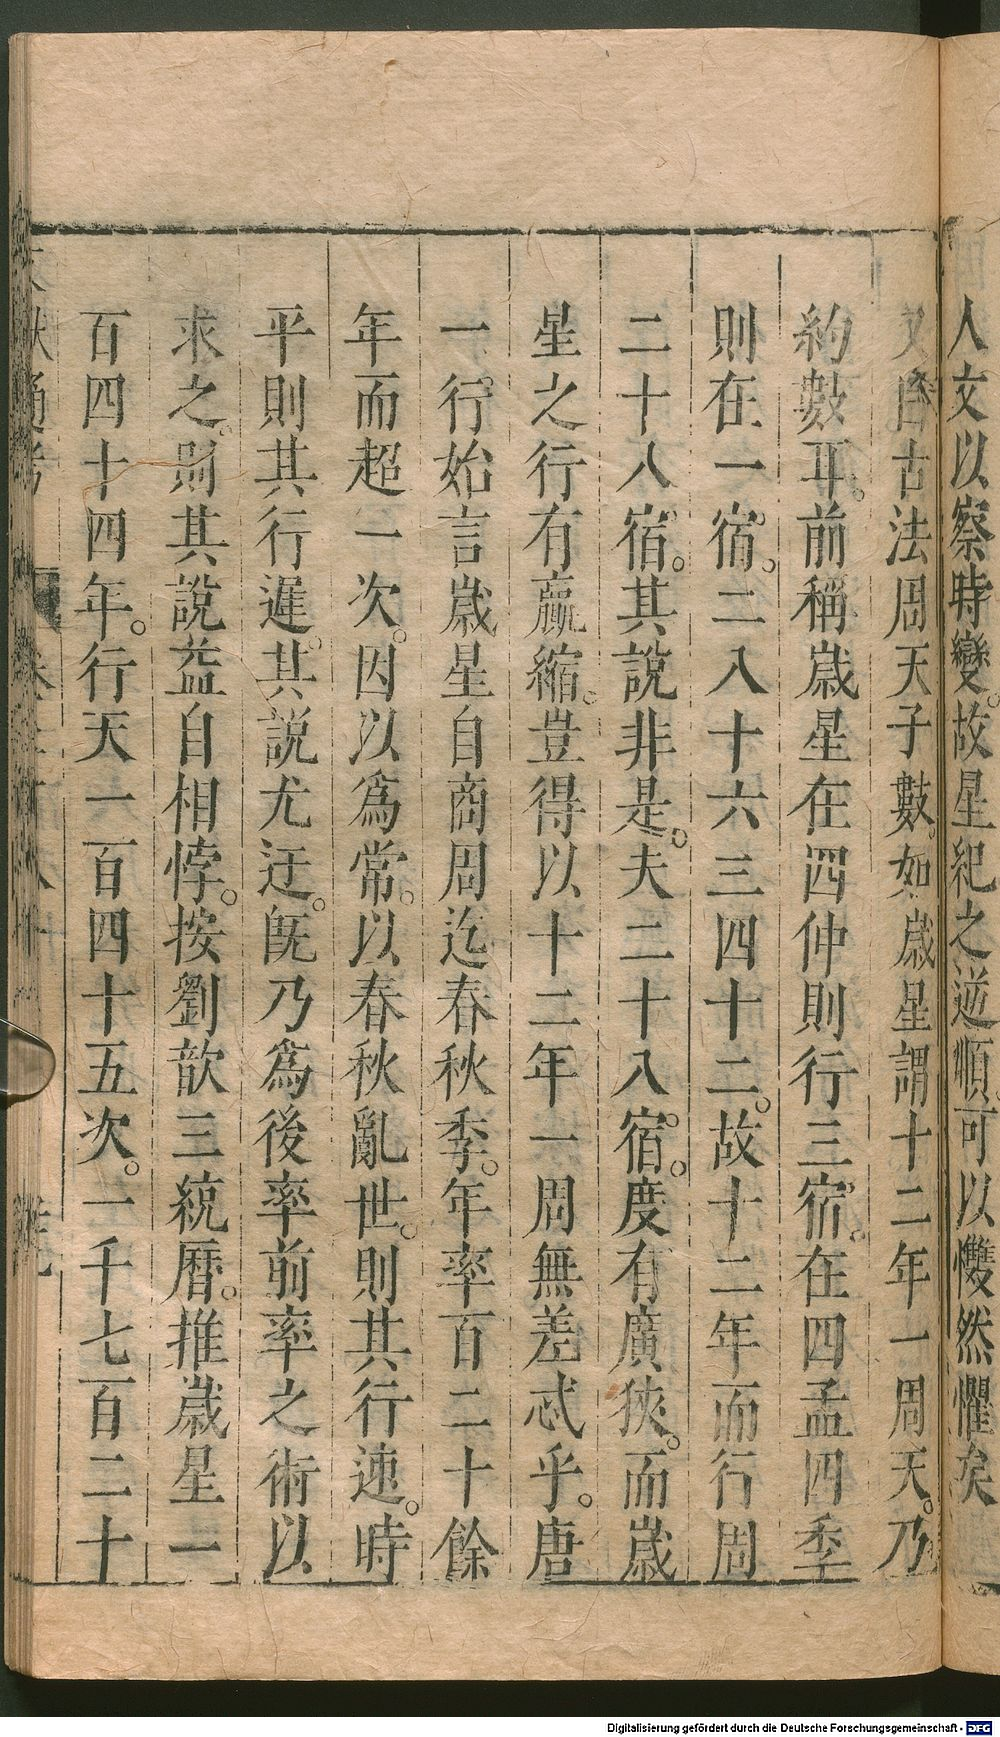 人文以察時變。故星紀之逆順。可以戄然懼矣
又自古法周天子數。如歲星謂十二年一周天。乃
約數耳。前稱歲星在四仲則行三宿。在四孟四季
則在一宿。二八十六三四十二。故十二年而行周
二十八宿。其說非是。夫二十八宿。度有廣狹。而歲
星之行有贏縮。豈得以十二年一周無差忒乎。唐
一行始言歲星自商周迄春秋季。年率百二十餘
年而超一次。因以爲常。以春秋亂世。則其行速。時
平則其行遲。其說尤迂。旣乃爲後率前率之術以
求之。則其說益自相悖。按劉歆三統曆。推歲星一
百四十四年。行天一百四十五次。一千七百二十
通考
Digitalisierung gefördert durch die Deutsche Forschungsgemeinschaft - DFG